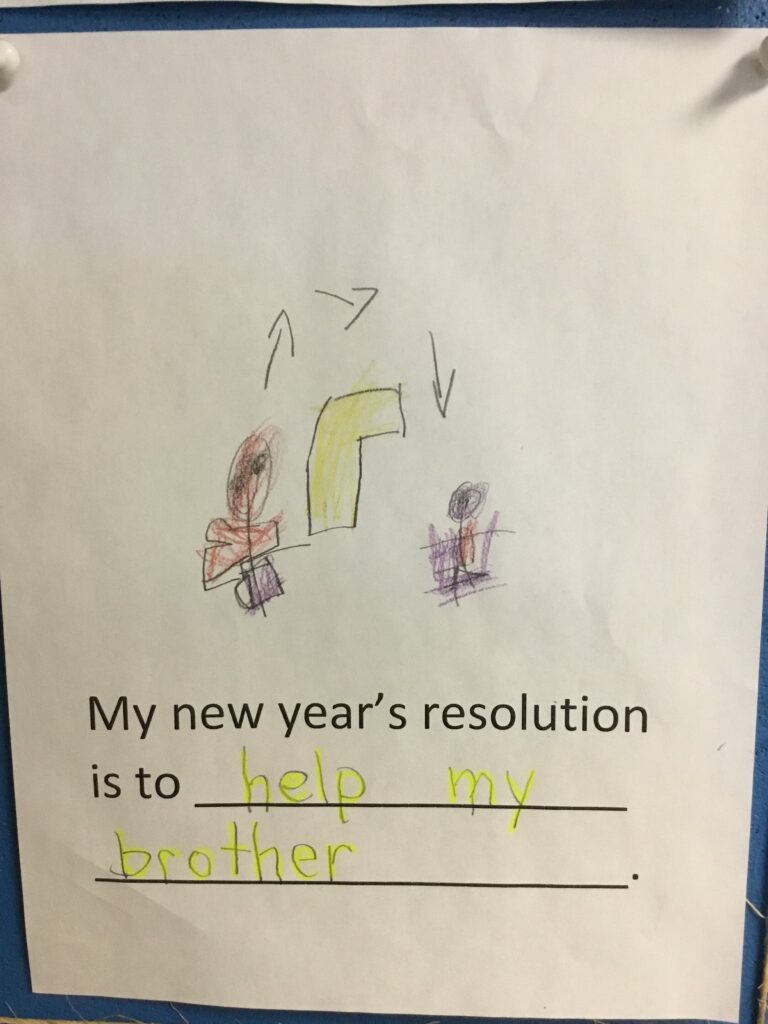 My new year's resolution
is to help my
brother.